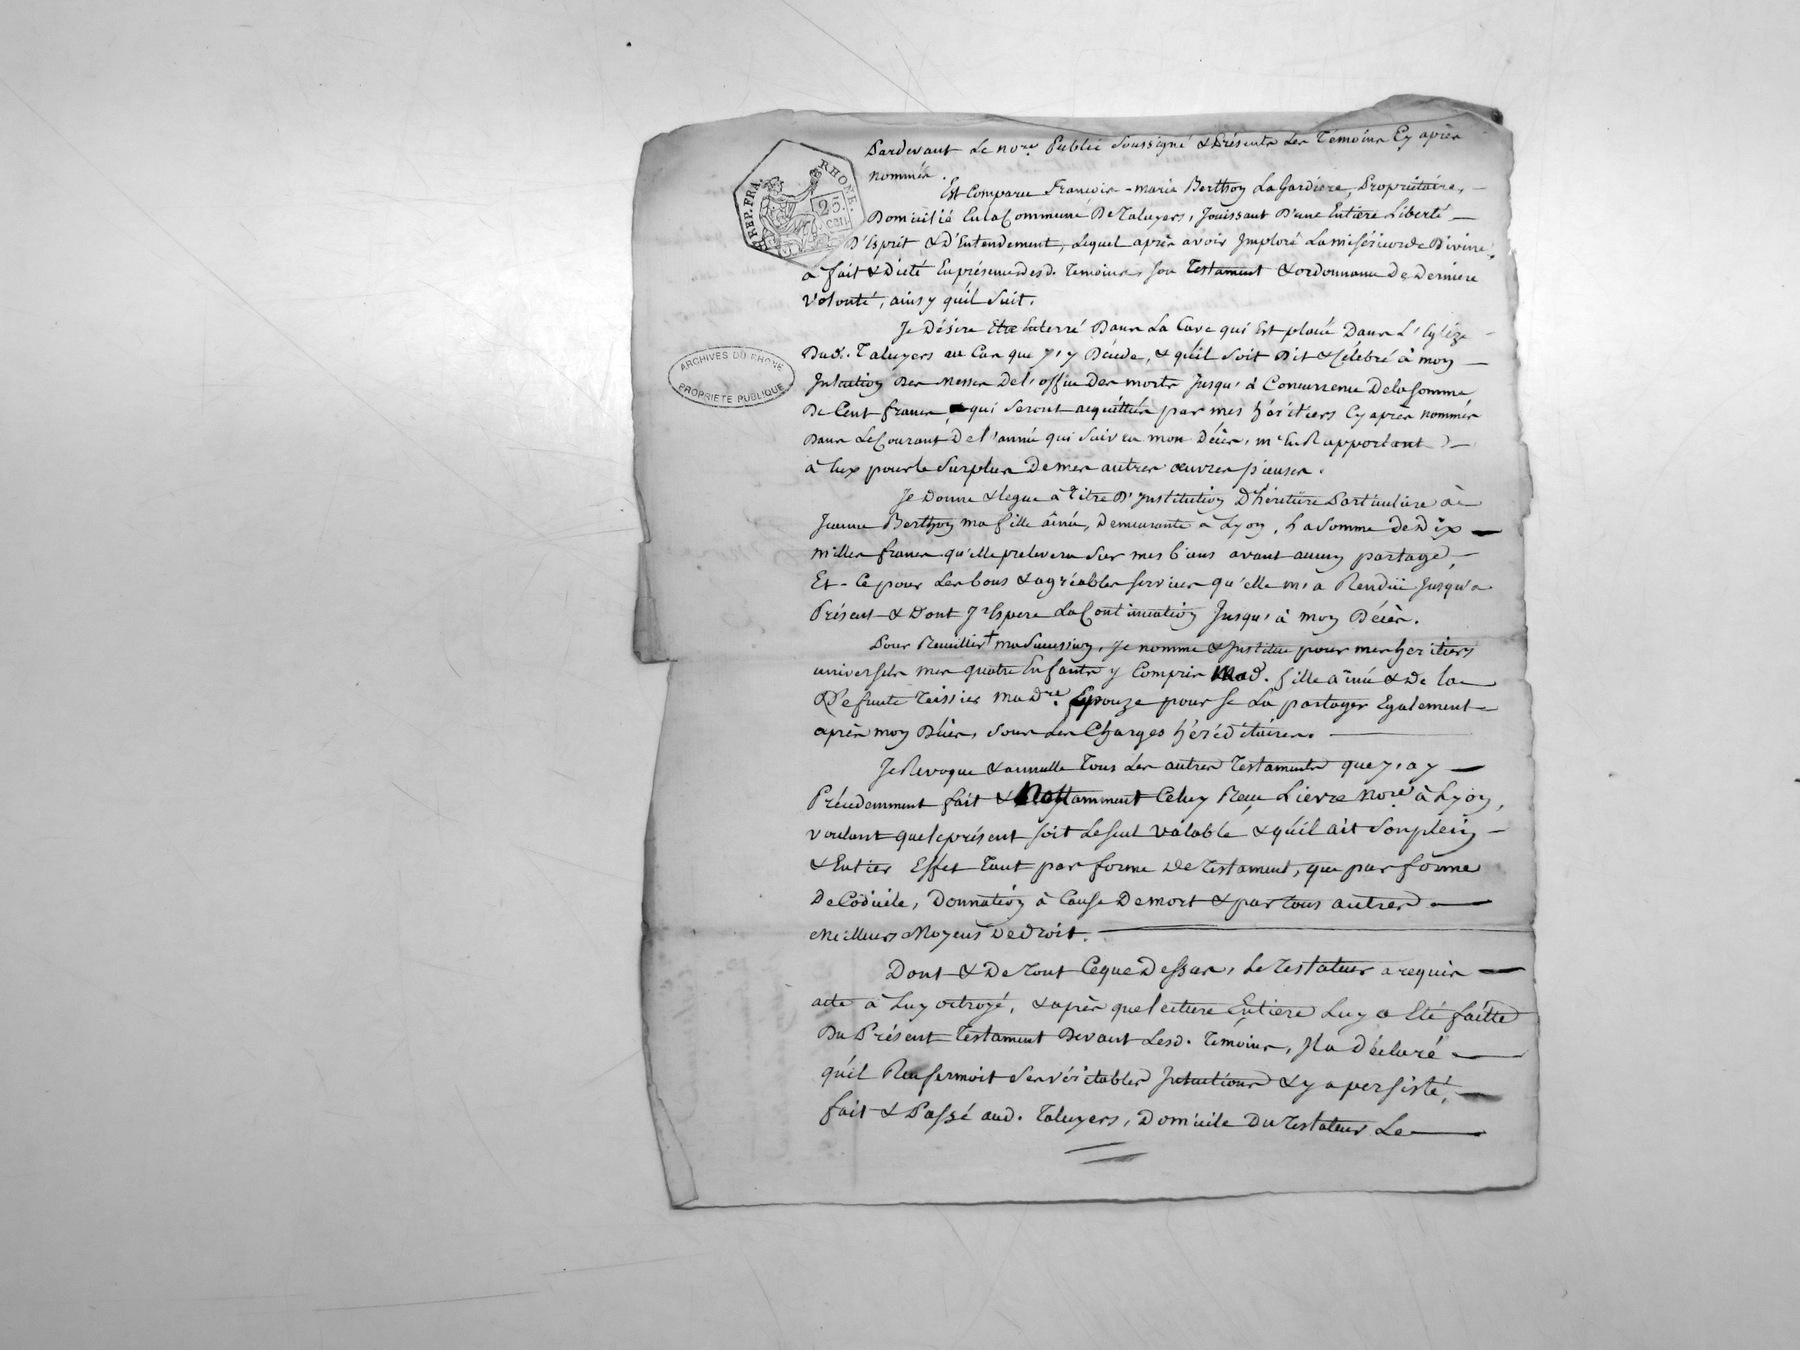 Pardevant Le no.re Public Soussigné & Présents Les Témoins Cy après
nommés.
Est Comparu François-marie Berthoy La Gardiere, Propriétaire, —
REP. FRA. RHONE.
25. cen.
Domicilié En la Commune De Taluyers, Jouissant D'une Entiere Liberté —
D'Esprit & d'Entendement, Lequel après avoir Imploré La miséricorde Divine,
à fait & Dicté En présence desd. Temoins, son Testament & ordonnance De Derniere
volonté, ainsy qu'il Suit.
Je Désire Etre Enterré Dans La Cave qui Est placé Dans L'Eglize
Dud. Taluyers au Cas que j'y Décede, & qu'il soit Dit & Célébré à moy —
Intention Des Messes De l'office Des morts Jusqu'à Concurrence De la Somme
ARCHIVES DU RHONE
PROPRIETE PUBLIQUE
De Cent francs qui Seront acquittés par mes héritiers Cy après nommés
Dans Le Courant De l'année qui Suivra mon Décès, m'En Rapportant —
à Eux pour le Surplus De mes autres œuvres pieuses.
Je Donne & legue à Titre D'Institution D'héritiere Particuliere à
Jeanne Berthoy ma fille ainée, Demeurante à Lyon, La Somme De Dix —
milles francs qu'elle prelevera Sur mes biens avant aucuy partage, —
Et Ce pour Les bons & agréables services qu'elle m'a Rendüe Jusqu'a
Présent & Dont J'Espere La Continuation Jusqu'à moy Décès.
Pour Recuillir + ma Succession, Je nomme & Institue pour mes heritiers
universels mes quatre Enfants y Compris Mad. fille ainée & De la —
Deffunte Teissier mad.re Epouze pour Se La partager Egalement —
après moy Décès, Sous Les Charges héréditaires. —
Je Revoque & annulle Tous Les autres Testaments que j'ay —
Précedemment fait & Nottamment Celuy Recu Lievre No.re à Lyon,
voulant que le présent soit Le Seul valable & qu'il ait Son pleiy —
& Entier Effet Tant par forme De Testament, que par forme
De Codicile, Donnation à Cause De mort & par Tous autres —
Meilleurs Moyens De Droit. —
Dont & De Tout Ce que Dessus, Le Testateur a requis —
acte à Luy octroyé, & après que lecture Entiere Luy a Eté faitte
Du Présent Testament Devant Lesd. Témoins, Il a Déclaré —
qu'il Renfermoit Ses véritables Intentions & y a persisté, —
fait & Passé aud. Taluyers, Domicile Du Testateur Le —